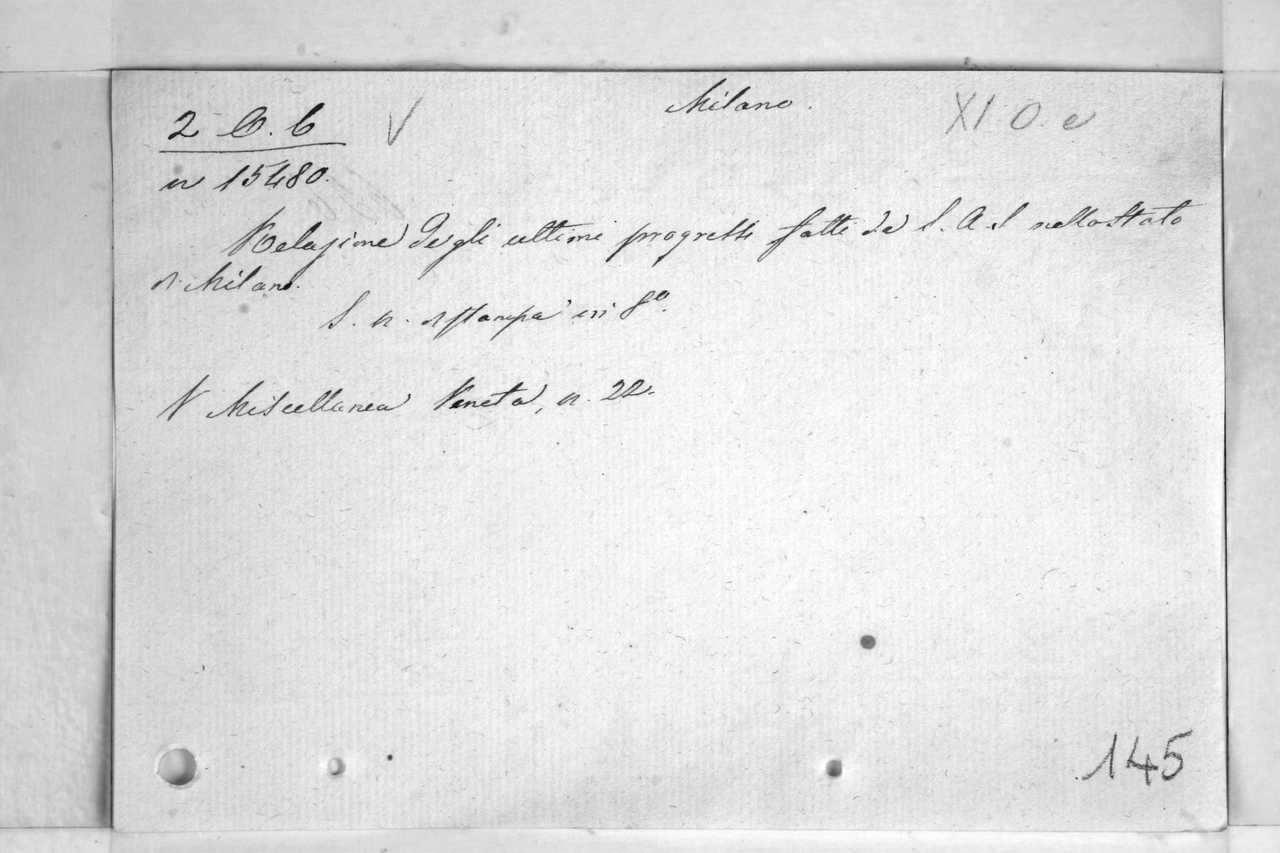 Milano.
2 B. 6 V XI O. e
n 15480.
Relazione degli ultimi progressi fatti da S. A. S nello Stato
di Milano.
S. n. di stampa in 8º.
V Miscellanea Veneta, n. 22.
145